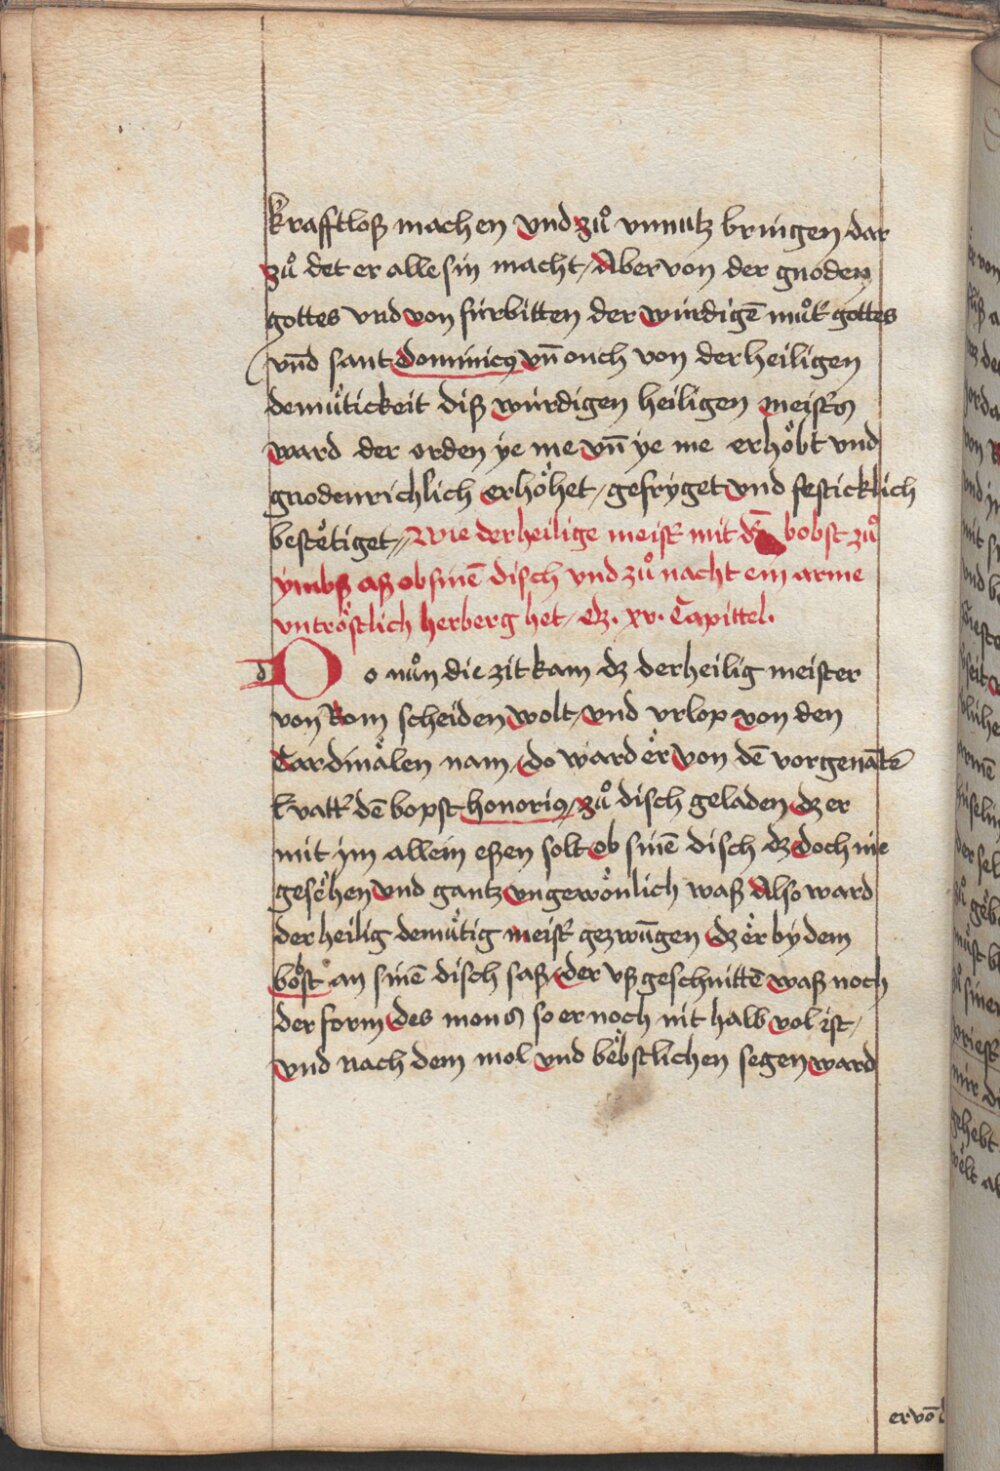 krafftloß machen vnd zuͦ vnnutz bringen dar
zuͦ det er alle sin macht / Aber von der gnoden
gottes vnd von fúrbitten der wúrdigē muͦt' gottes
vn̄d sant dominicꝰ vn̄ ouch von der heiligen
demuͤtickeit diß wúrdigen heiligen meisters
ward der orden ye me vn̄ ye me erhoͤbt vnd
gnodenrichlich erhoͤhet / gefryget vnd festicklich
bestetiget // Wie der heilige meist' mit bobst zuͦ
ymbß aß ob sinē disch vnd zuͦ nacht ein arme
vntroͤstlich herberg het / dz · xv · Capittel ·
Do nuͦn die zit kam dz der heilig meister
von Rom scheiden wolt / vnd vrlop von den
Cardinaͤlen nam / do ward er von dē vorgenātē
vatt' dē bopst honoriꝰ / zuͦ disch geladen dz er
mit ym allein eßen solt ob sinē disch dz doch nie
gesehen vnd gantz vngewoͤnlich waß Also ward
der heilig demuͤtig meist' gezwūgen dz er by dem
boͤst an sinē disch saß / der vßgeschnittē waß noch
der form des mons so er noch nit halb vol ist /
vnd nach dem mol vnd bebstlichen segen ward
er vō